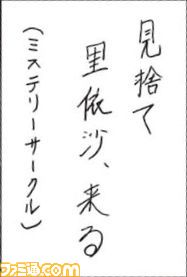 見捨て
里依沙、来る
(ミステリーサークル)
ファミ通.com